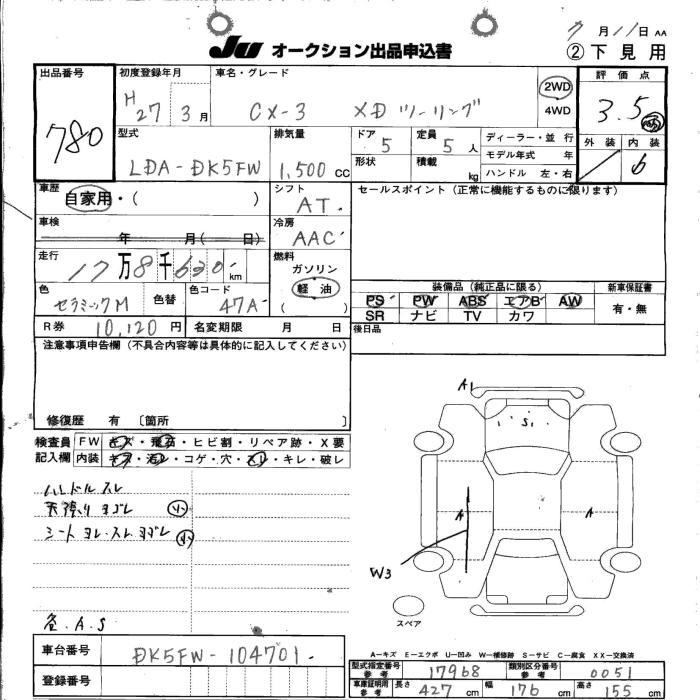 7月11日 AA
JU オークション出品申込書 ②下見用
出品番号 初度登録年月 車名・グレード 2WD 評価点
780 H27 3月 CX-3 XD ツーリング 4WD 3.5
型式 排気量 ドア 5 定員 5人 ディーラー・並行 外装 内装
LDA-DK5FW 1,500cc 形状 積載 kg モデル年式 年 6
ハンドル 左・右
車歴 自家用・( ) シフト AT. セールスポイント(正常に機能するものに限ります)
車検 年 月( 日) 冷房 AAC
走行 17万8千620km 燃料 ガソリン 軽油 ( )
色 セラミックM 色替 色コード 47A 装備品(純正品に限る) 新車保証書
PS PW ABS エアB AW 有・無
SR ナビ TV カワ
R券 10,120円 名変期限 月 日 後日品
注意事項申告欄(不具合内容等は具体的に記入してください)
修復歴 有〔箇所 〕
検査員記入欄 FW キズ・飛石・ヒビ割・リペア跡・X要
内装 キズ・汚レ・コゲ・穴・スレ・キレ・破レ
ハンドルスレ
天張りヨゴレ 小
シートヨレ・スレ ヨゴレ 小
A.S
A1
S1
A
A
W3
スペア
A-キズ E-エクボ U-凹み W-補修跡 S-サビ C-腐食 XX-交換済
車台番号 DK5FW-104701
登録番号
型式指定番号 参考 17968 類別区分番号 参考 0051
車庫証明用 参考 長さ 427cm 幅 176cm 高さ 155cm